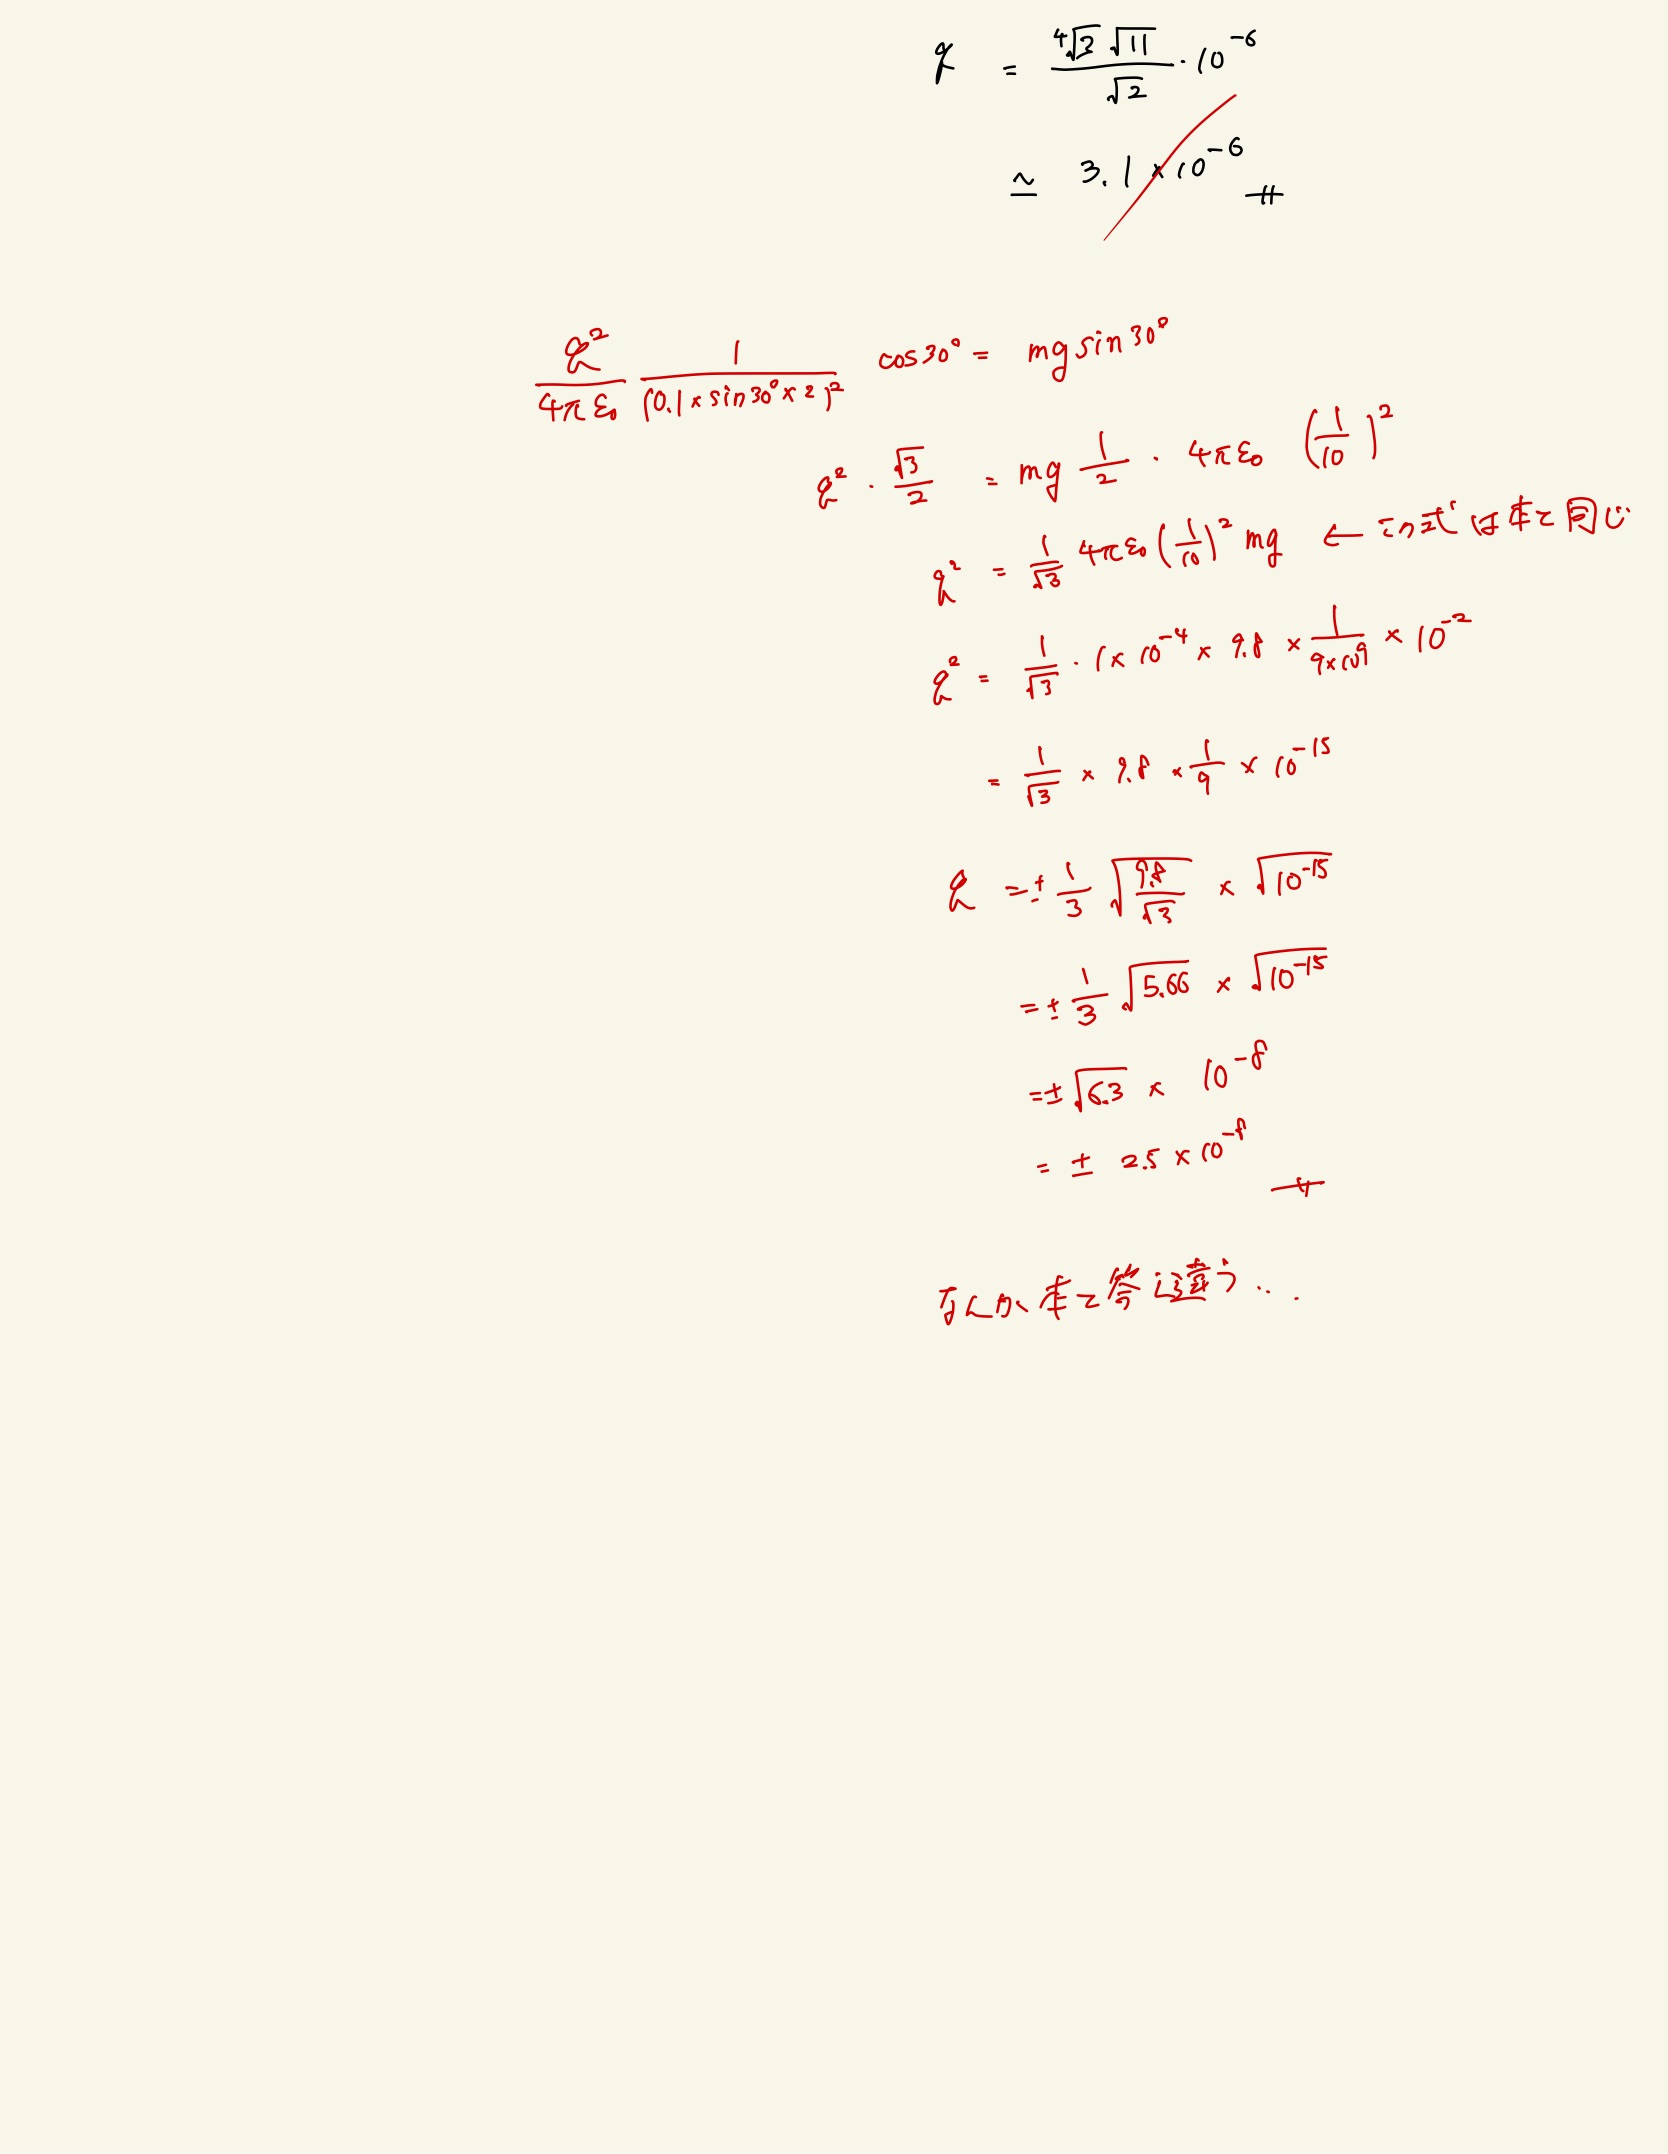 q = ⁴√3 √11 / √2 · 10⁻⁶
≃ 3.1 × 10⁻⁶
q² / 4πε₀ 1 / (0.1 × sin30° × 2)² cos30° = mg sin30°
q² · √3/2 = mg 1/2 · 4πε₀ (1/10)²
q² = 1/√3 4πε₀ (1/10)² mg ← この式は本と同じ
q² = 1/√3 · 1 × 10⁻⁴ × 9.8 × 1/(9×10⁹) × 10⁻²
= 1/√3 × 9.8 × 1/9 × 10⁻¹⁵
q = ± 1/3 √(9.8/√3) × √(10⁻¹⁵)
= ± 1/3 √5.66 × √(10⁻¹⁵)
= ± √6.3 × 10⁻⁸
= ± 2.5 × 10⁻⁸
なんか本と答え違う...